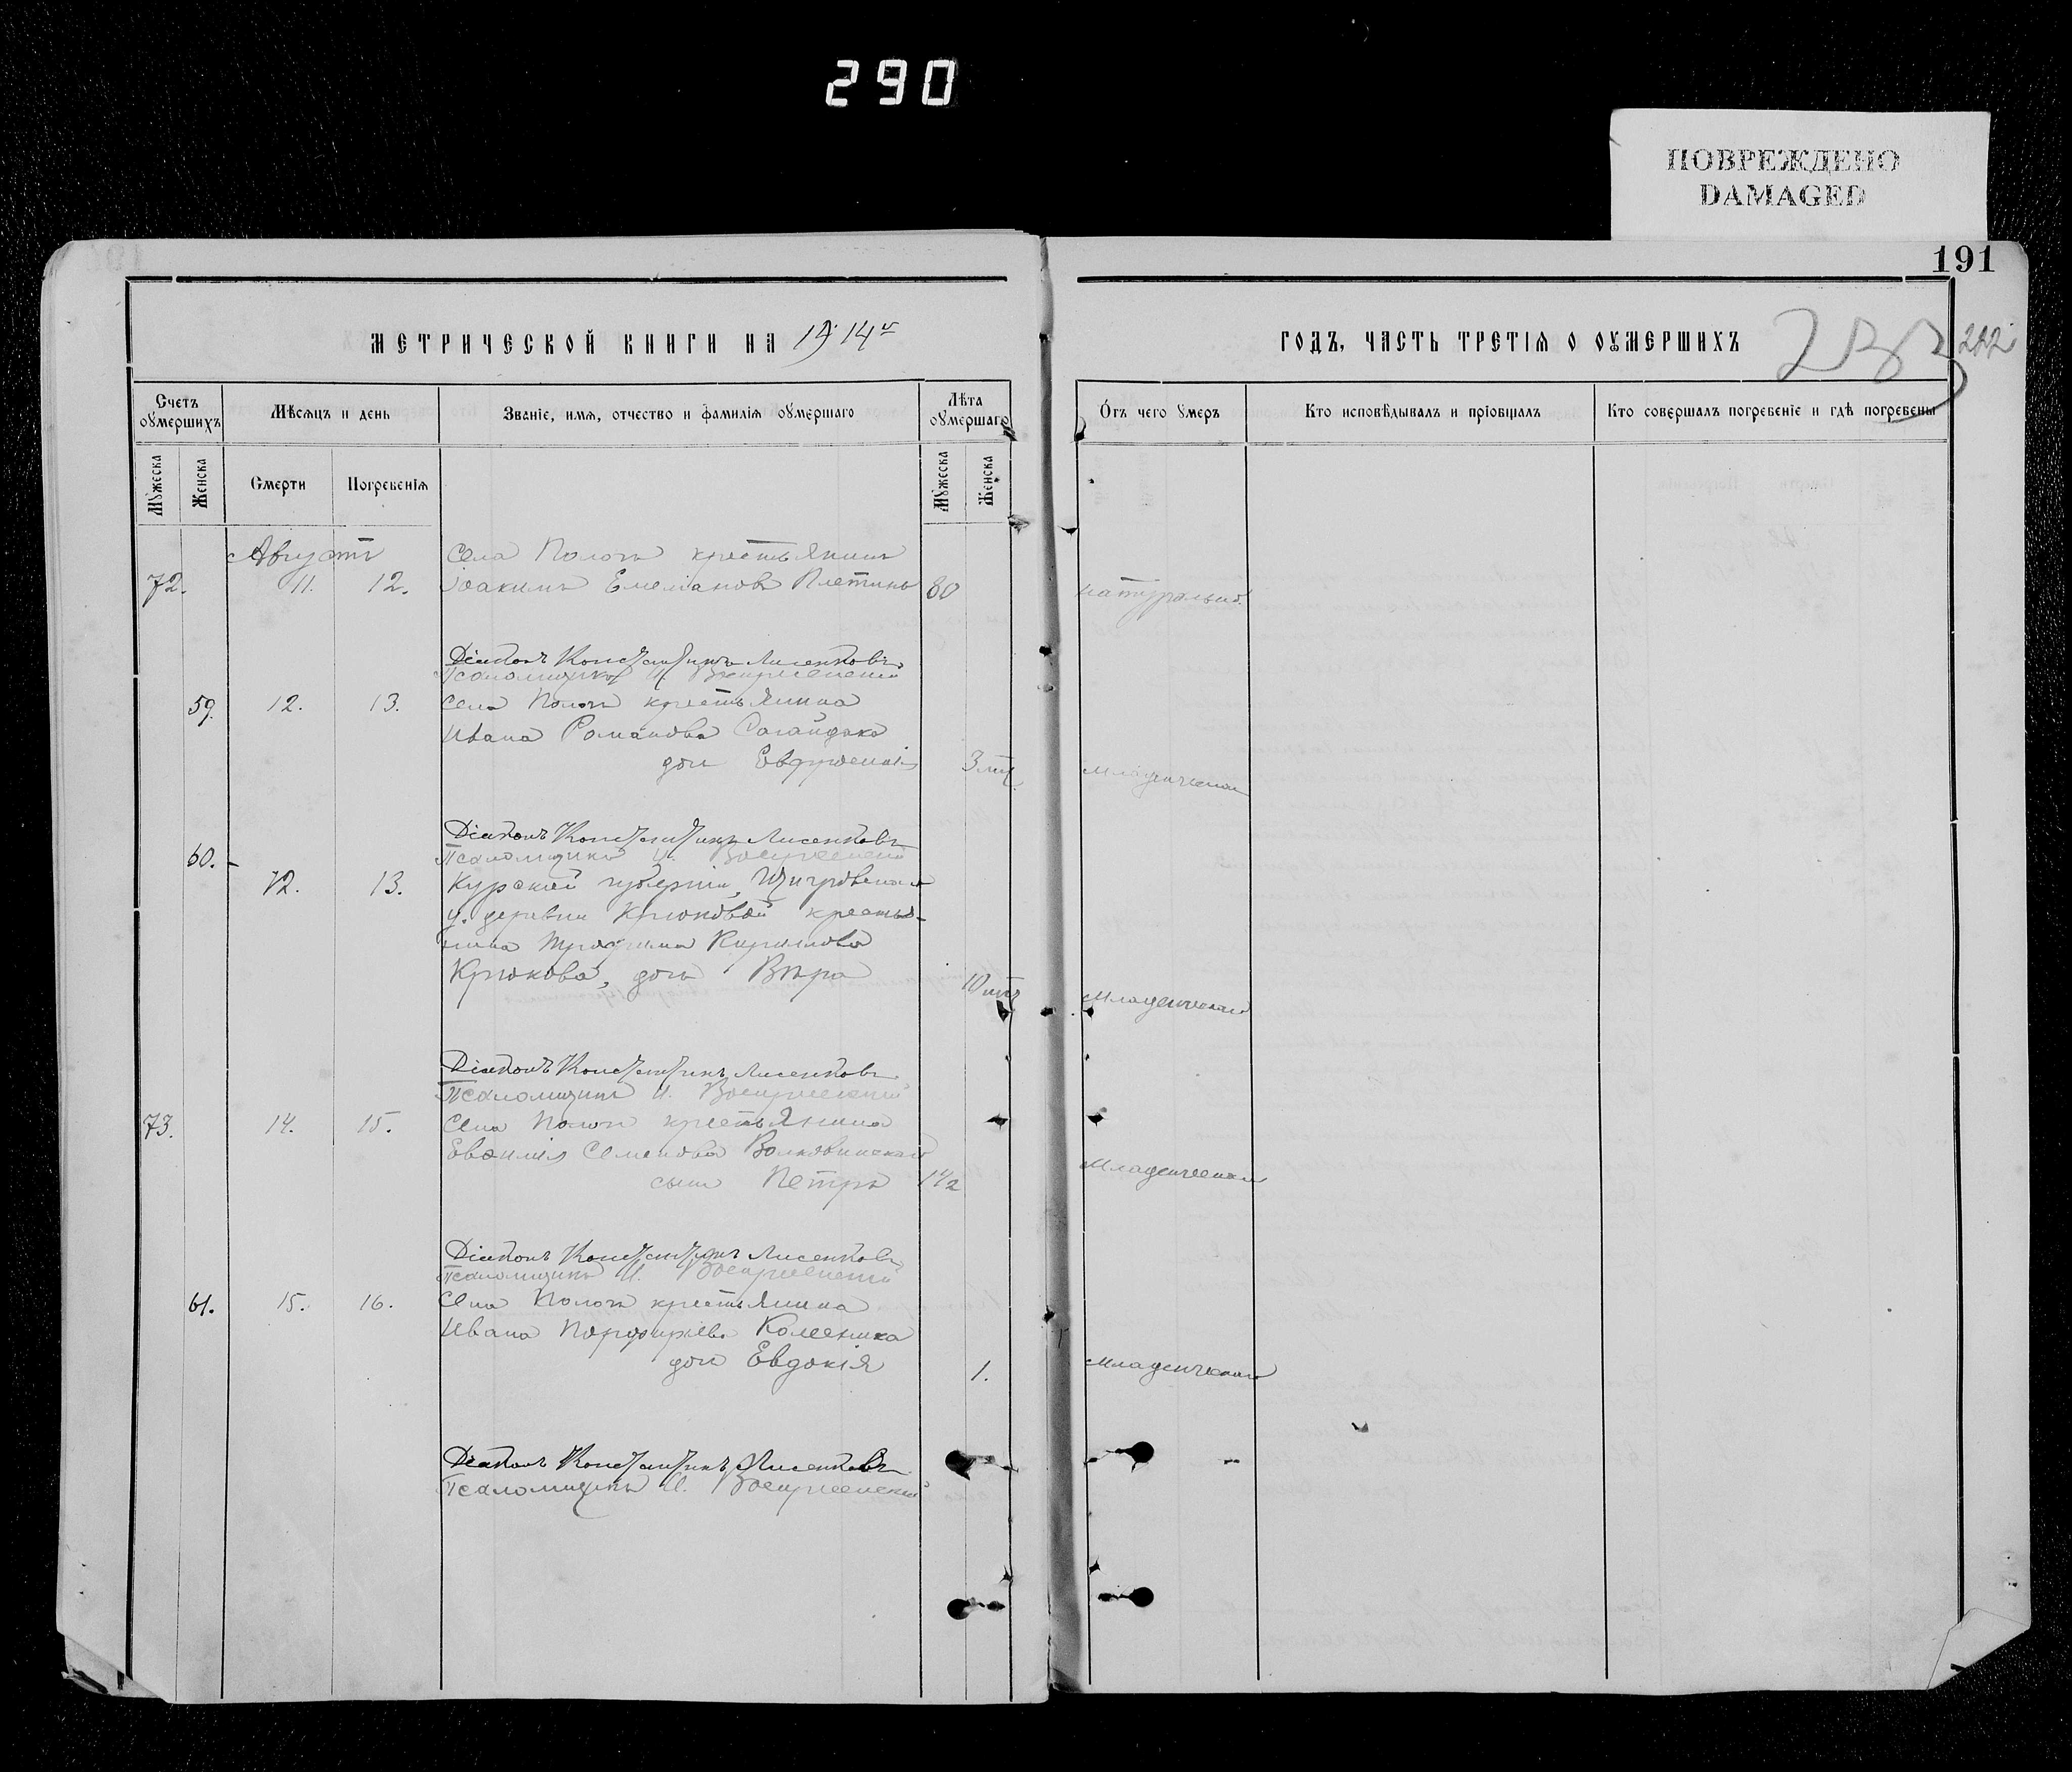 290
ПОВРЕЖДЕНО
DAMAGED
191
МЕТРИЧЕСКОЙ КНИГИ НА 1914й
ГОДЪ, ЧАСТЬ ТРЕТІЯ О ОУМЕРШИХЪ
222
Счетъ оумершихъ
Мѣсяцъ и день
Званіе, имя, отчество и фамилія оумершаго
Лѣта оумершаго
Отъ чего умеръ
Кто исповѣдывалъ и пріобщалъ
Кто совершалъ погребеніе и гдѣ погребены
Мужеска
Женска
Смерти
Погребенія
Мужеска
Женска
Августъ
Села Пологъ крестьянинъ
72. 11. 12. Іоакимъ Емеліановъ Плетинь 80 натуральной
Діаконъ Константинъ Лисенковъ
Псаломщикъ И. Воскресенскій
59. 12. 13. Села Пологъ крестьянина
Ивана Романова Сагайдака
дочь Евфросинія 3 мѣс. младенческая
Діаконъ Константинъ Лисенковъ
Псаломщикъ И. Воскресенскій
60. 12. 13. Курской губерніи, Щигровскаго
у. деревни Крюковой крестья-
нина Трофима Кириллова
Крюкова, дочь Вѣра 10 мѣс младенческая
Діаконъ Константинъ Лисенковъ
Псаломщикъ И. Воскресенскій
73. 14. 15. Села Пологъ крестьянина
Евфимія Семенова Волковинскаго
сынъ Петръ 1 1/2 младенческая
Діаконъ Константинъ Лисенковъ
Псаломщикъ И. Воскресенскій
61. 15. 16. Села Пологъ крестьянина
Ивана Порфиріева
дочь Евдокія 1. младенческая
Діаконъ Константинъ Лисенковъ
Псаломщикъ И. Воскресенскій